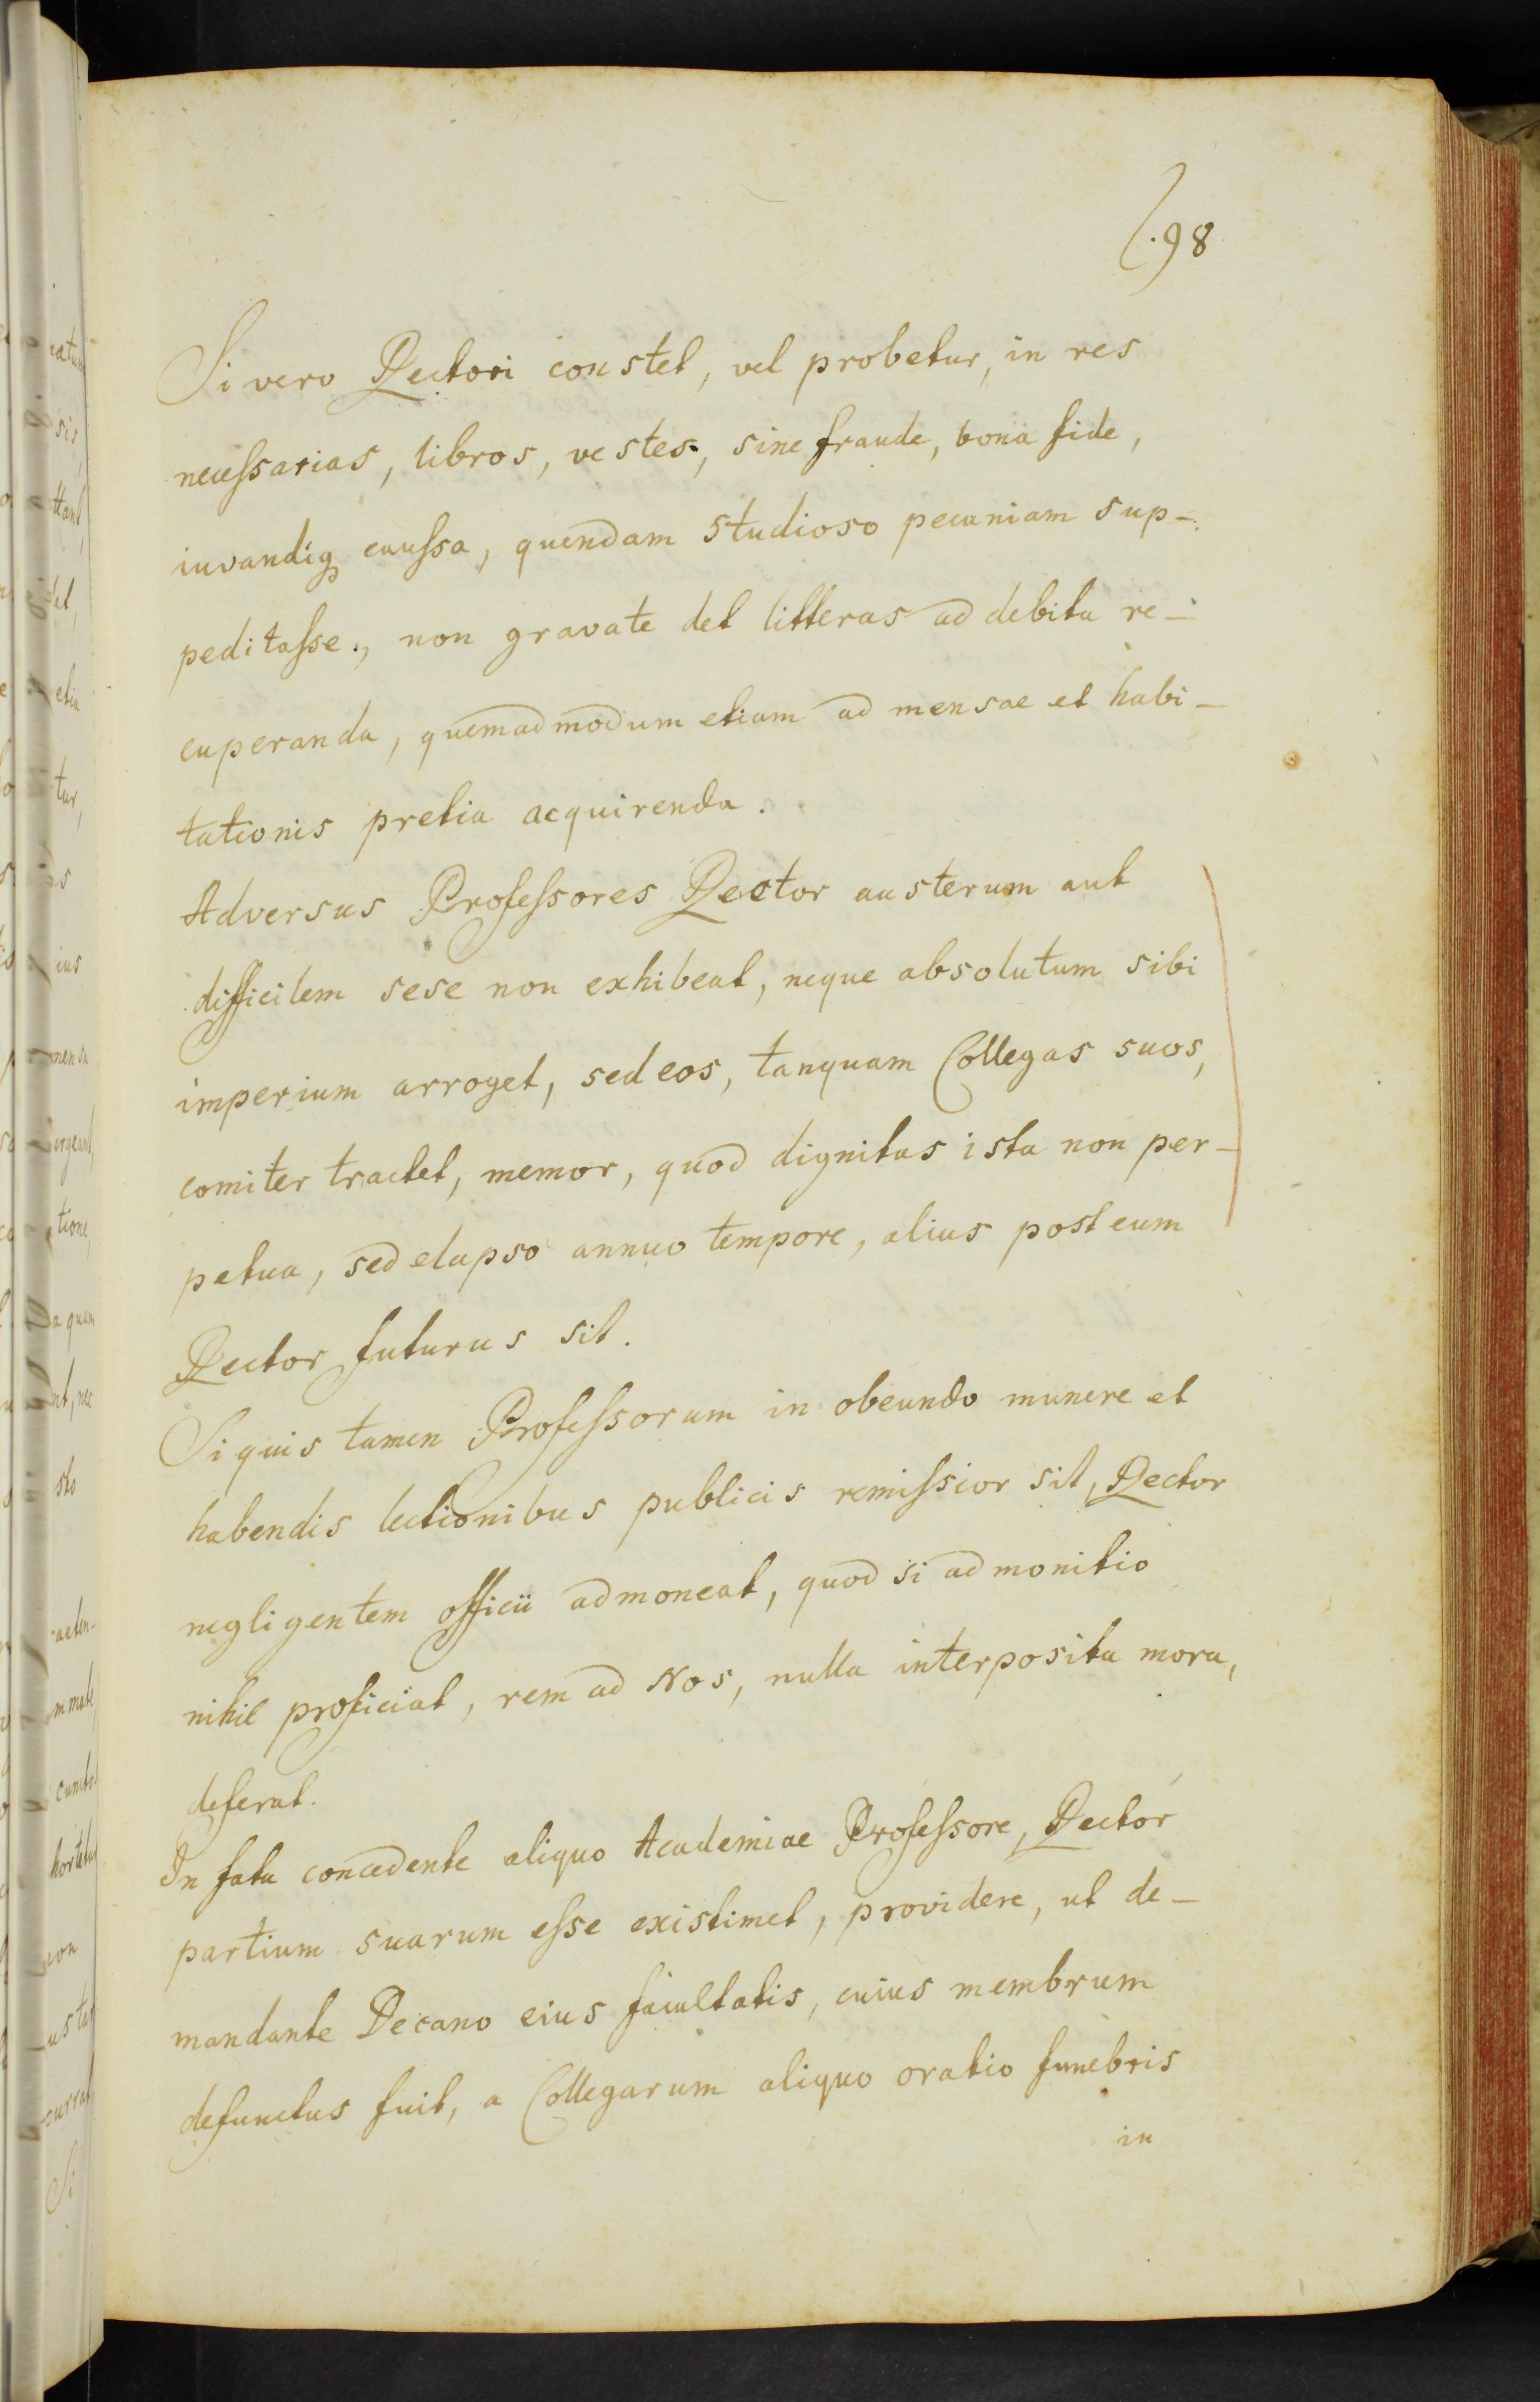 98
Si vero Rectori constet, vel probetur, in res
necessarias, libros, vestes, sine fraude, bona fide,
iuvandiq caussa, quendam studioso pecuniam sup-
peditasse, non gravate det litteras ad debita re-
cuperanda, quemadmodum etiam ad mensae et habi-
tationis pretia acquirenda.
Adversus Professores Rector austerum aut
difficilem sese non exhibeat, neque absolutum sibi
imperium arroget, sed eos, tanquam Collegas suos,
comiter tractet, memor, quod dignitas ista non per-
petua, sed elapso annuo tempore, alius post eum
Rector futurus sit.
Si quis tamen Professorum in obeundo munere et
habendis lectionibus publicis remissior sit, Rector
negligentem officii admoneat, quod si admonitio
nihil proficiat, rem ad Nos, nulla interposita mora,
deferat.
In fata concedente aliquo Academiae Professore, Rector
partium suarum esse existimet, providere, ut de-
mandante Decano eius facultatis, cuius membrum
defunctus fuit, a Collegarum aliquo oratio funebris
in